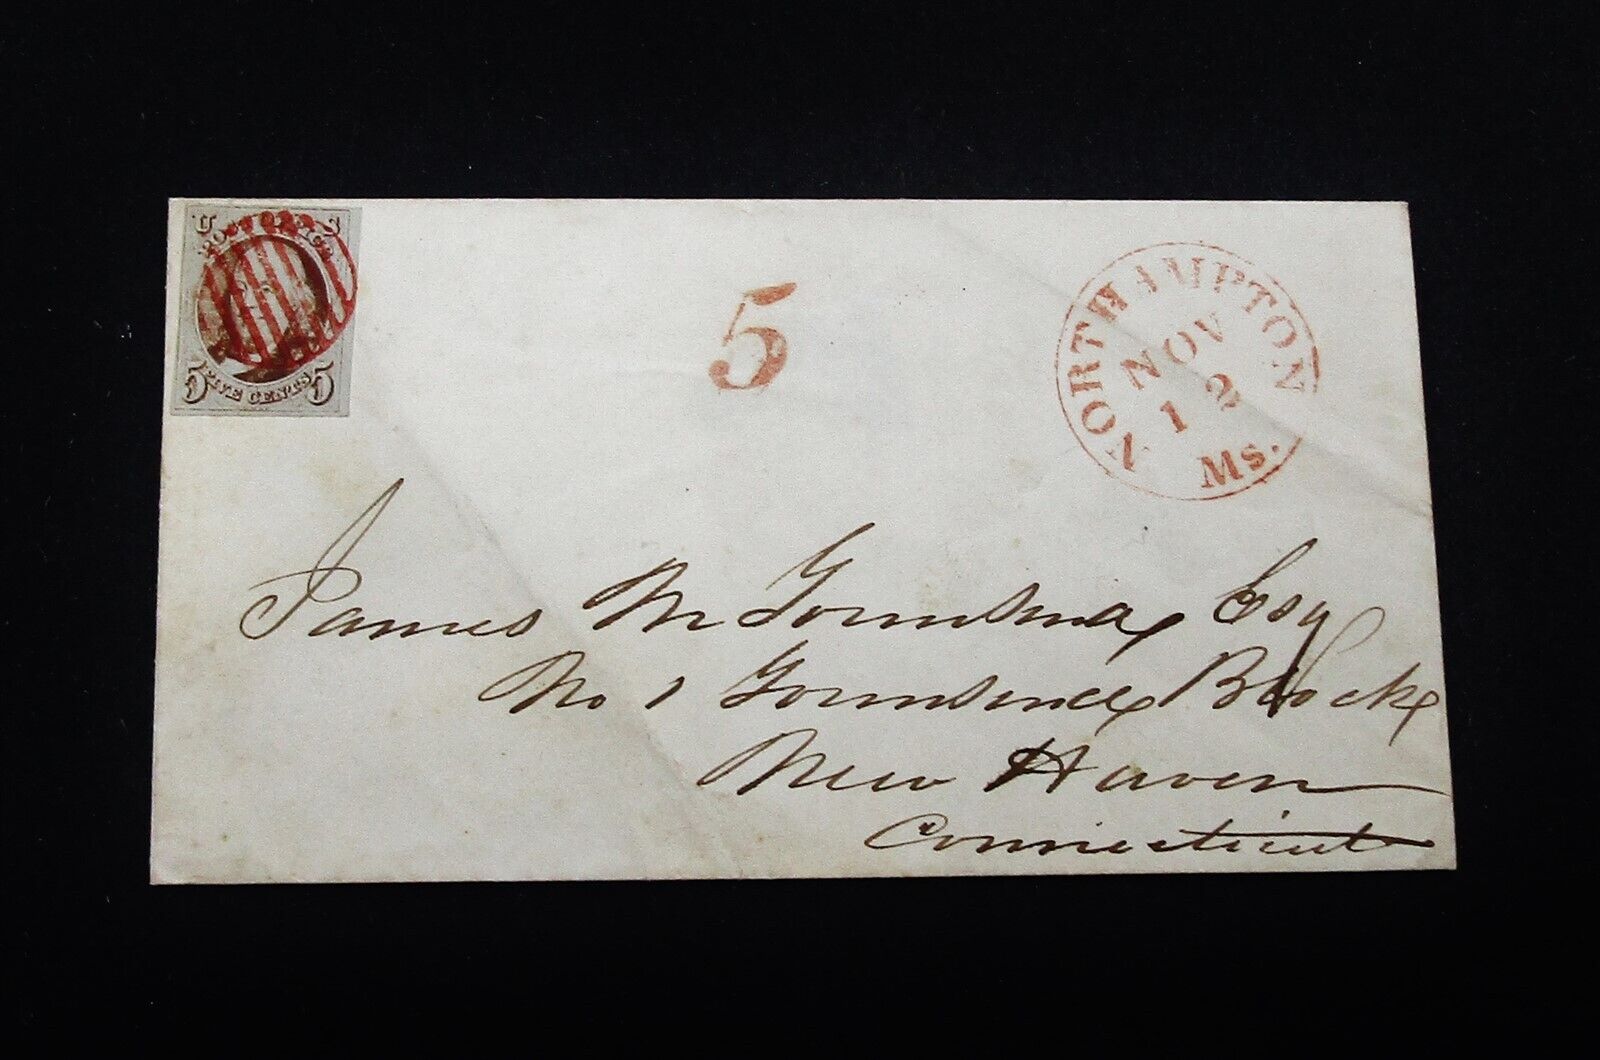 U S
POST OFFICE
5 FIVE CENTS 5
5
NORTHAMPTON
NOV
12
Ms.
James M Townsend Esq
No 1 Townsend Block
New Haven
Connecticut